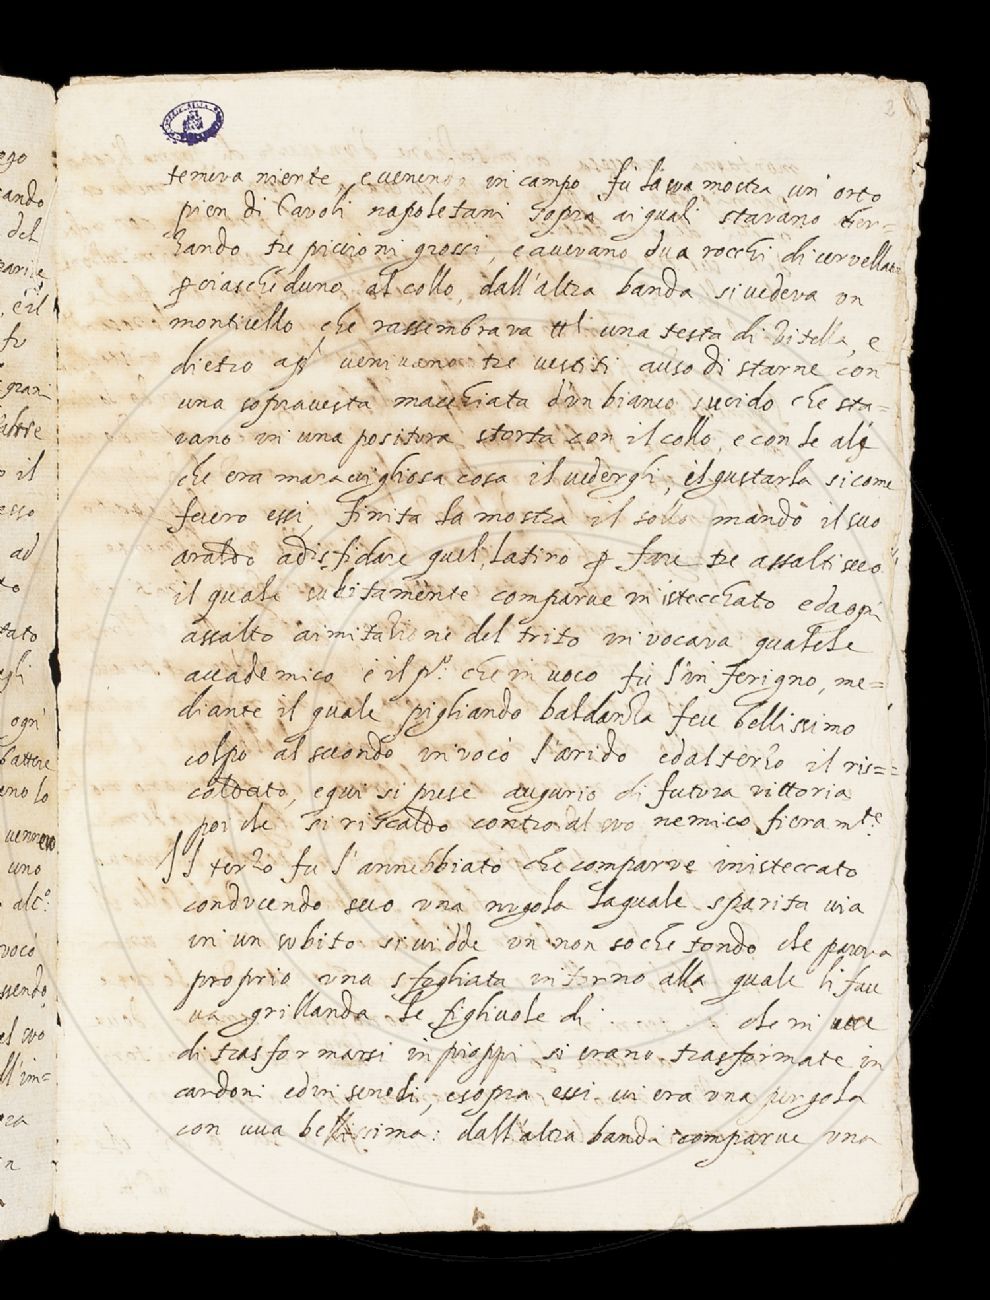 2
temeva niente, e venendo in campo fù la sua mostra un' orto
pien di Cavoli napoletani sopra ai quali stavano scher=
zando tre piccioni grossi, e avevano dua rocchi di cervellata
p ciascheduno al collo, dall'altra banda si vedeva un
monticello che rassembrava una testa di Vitella, e
dietro veniveno tre vestiti auso di starne con
una sopravesta macchiata d'un bianco sucido che sta=
vano in una positura storta con il collo, e con le ali
che era maravigliosa cosa il vedergli, el gustarla sicome
fecero essi, finita la mostra il sollo mandò il suo
araldo adisfidare quel, latino p fare tre assalti seco
il quale subitamente comparve in stecchato ed a ogni
assalto aimitazione del trito invocava qualche
accademico e il p.º che invocò fù l'inferigno, me=
diante il quale pigliando baldanza fece bellissimo
colpo al secondo invocò l'arido ed al terzo il ris=
caldato, e qui si prese augurio di futura vittoria
poi che si riscaldò contro al suo nemico fieram.te
Il terzo fu l'annebbiato che comparve in isteccato
conducendo seco una nugola la quale sparita via
in un subito si vidde un non soche tondo che pareva
proprio una sfogliata intorno alla quale li face
va grillanda le figliuole di . . . . . . che in vece
di trasformarsi in pioppi si erano trasformate in
cardoni ed in seneli, e sopra essi vi era una pergola
con uva bellissima: dall'altra banda comparve una